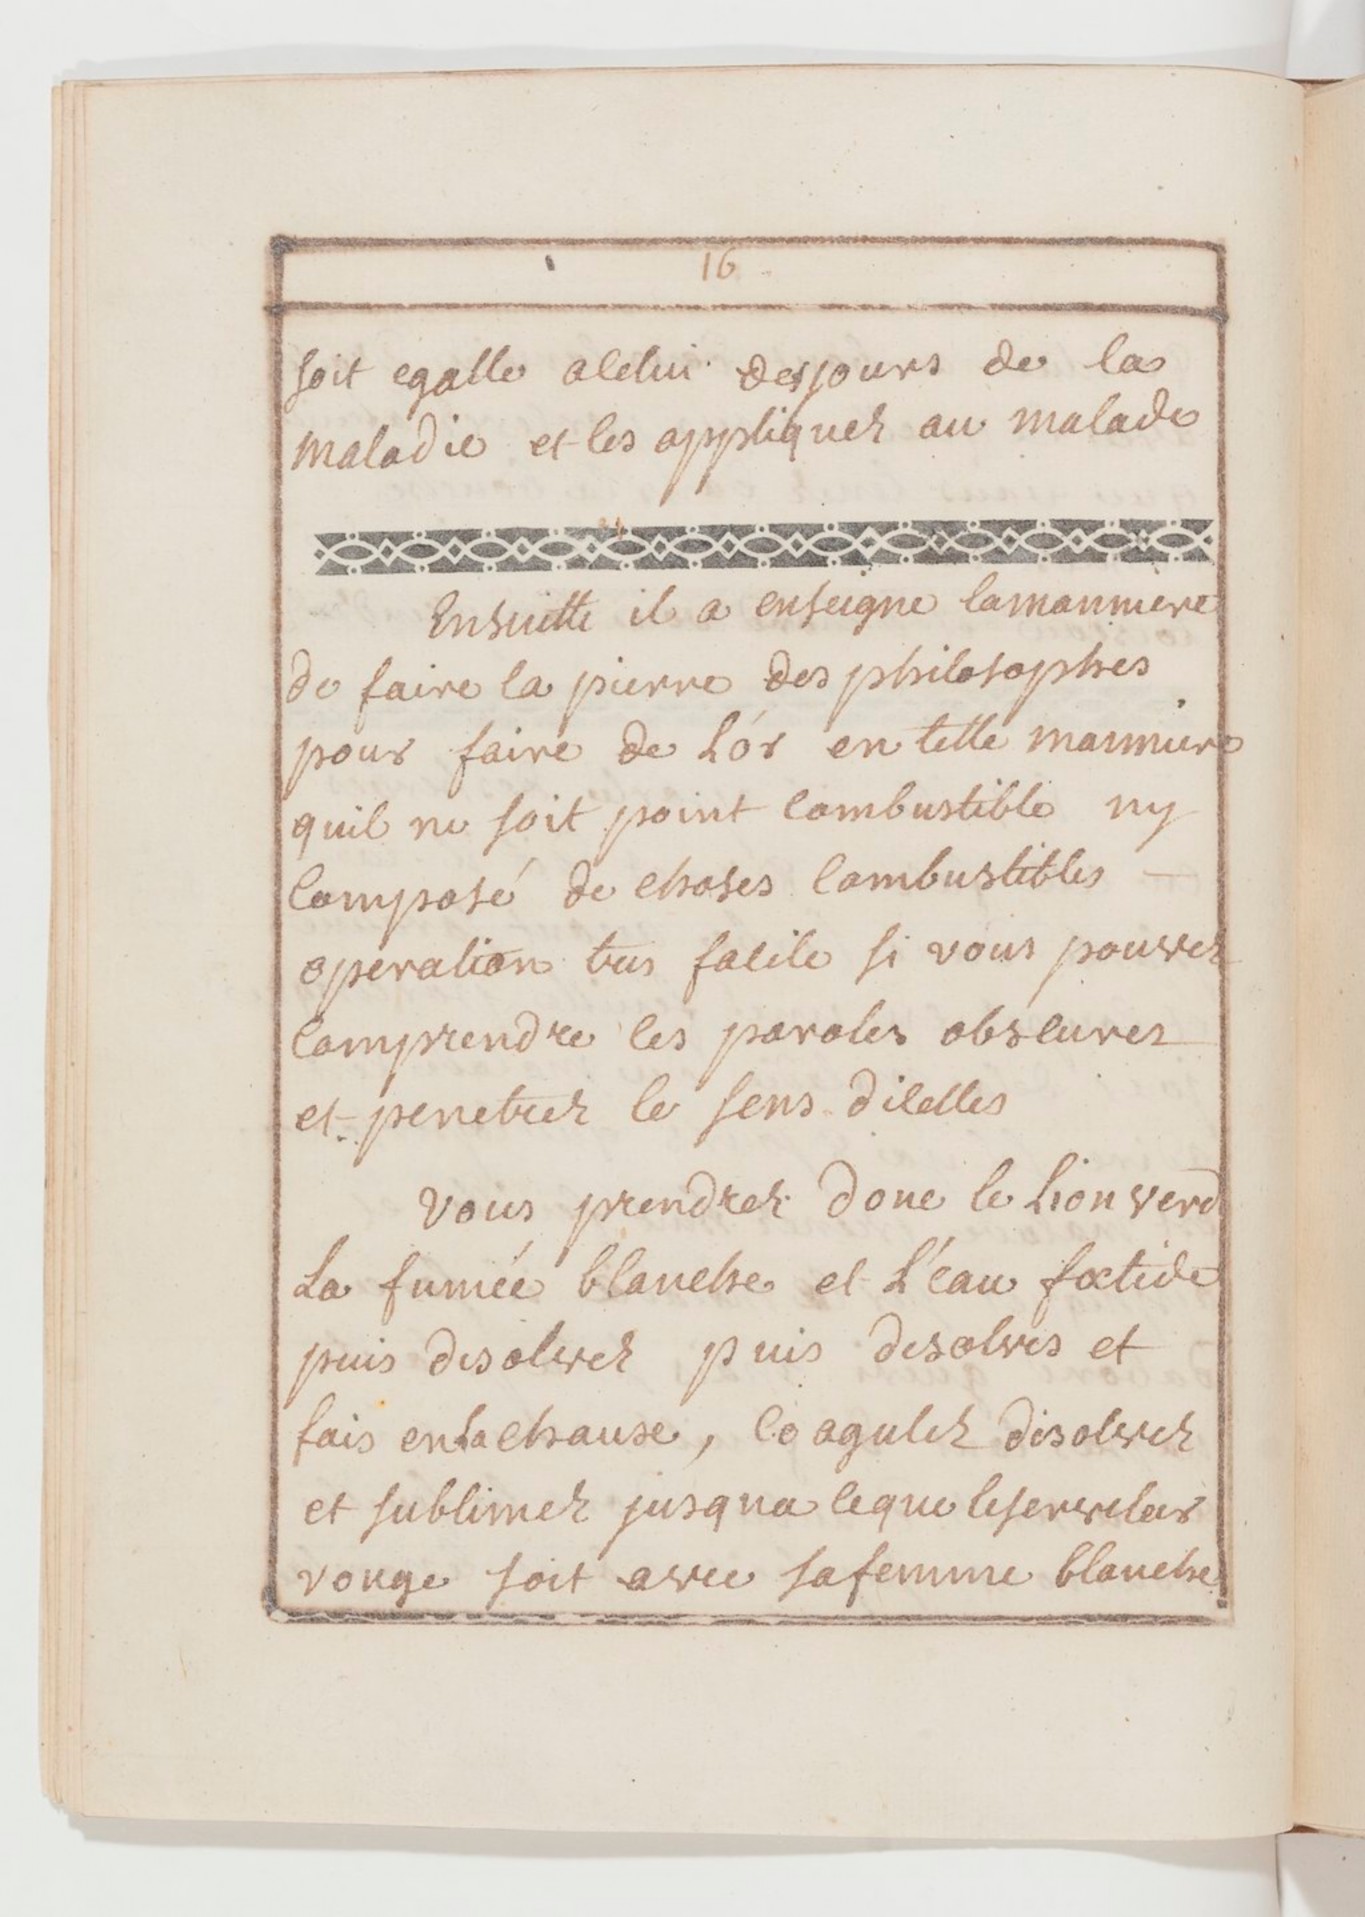 16
soit egalle acelui des jours de la
maladie et les appliquez au malade
Ensuitte il a enseigne lamanniere
de faire la pierre des philosophes
pour faire de L'or en telle manniere
quil ne soit point combustible ny
composé de choses combustibles –
operation tres facile si vous pouvez
comprendre les paroles obscures
et penetrer le sens dicelles
Vous prendrez donc le Lion verd
La fumée blanche et L'éau fœtide
puis disolvez puis disolves et
fais enlachause, coagulez disolvez
et sublimez jusqua ceque leserviteur
rouge soit avec safemme blanche